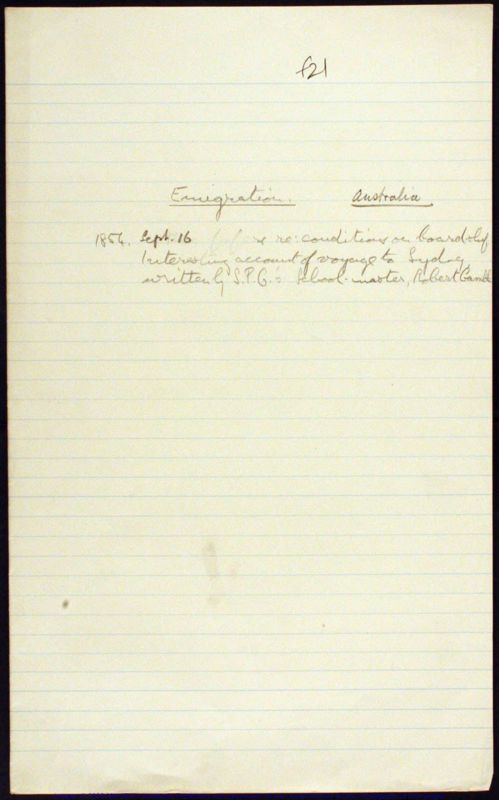 f21
Emigration. Australia.
1856. Sept. 16 re: conditions on board ship
Interesting account of voyage to Sydney
written by S.P.G.'s School-master, Robert